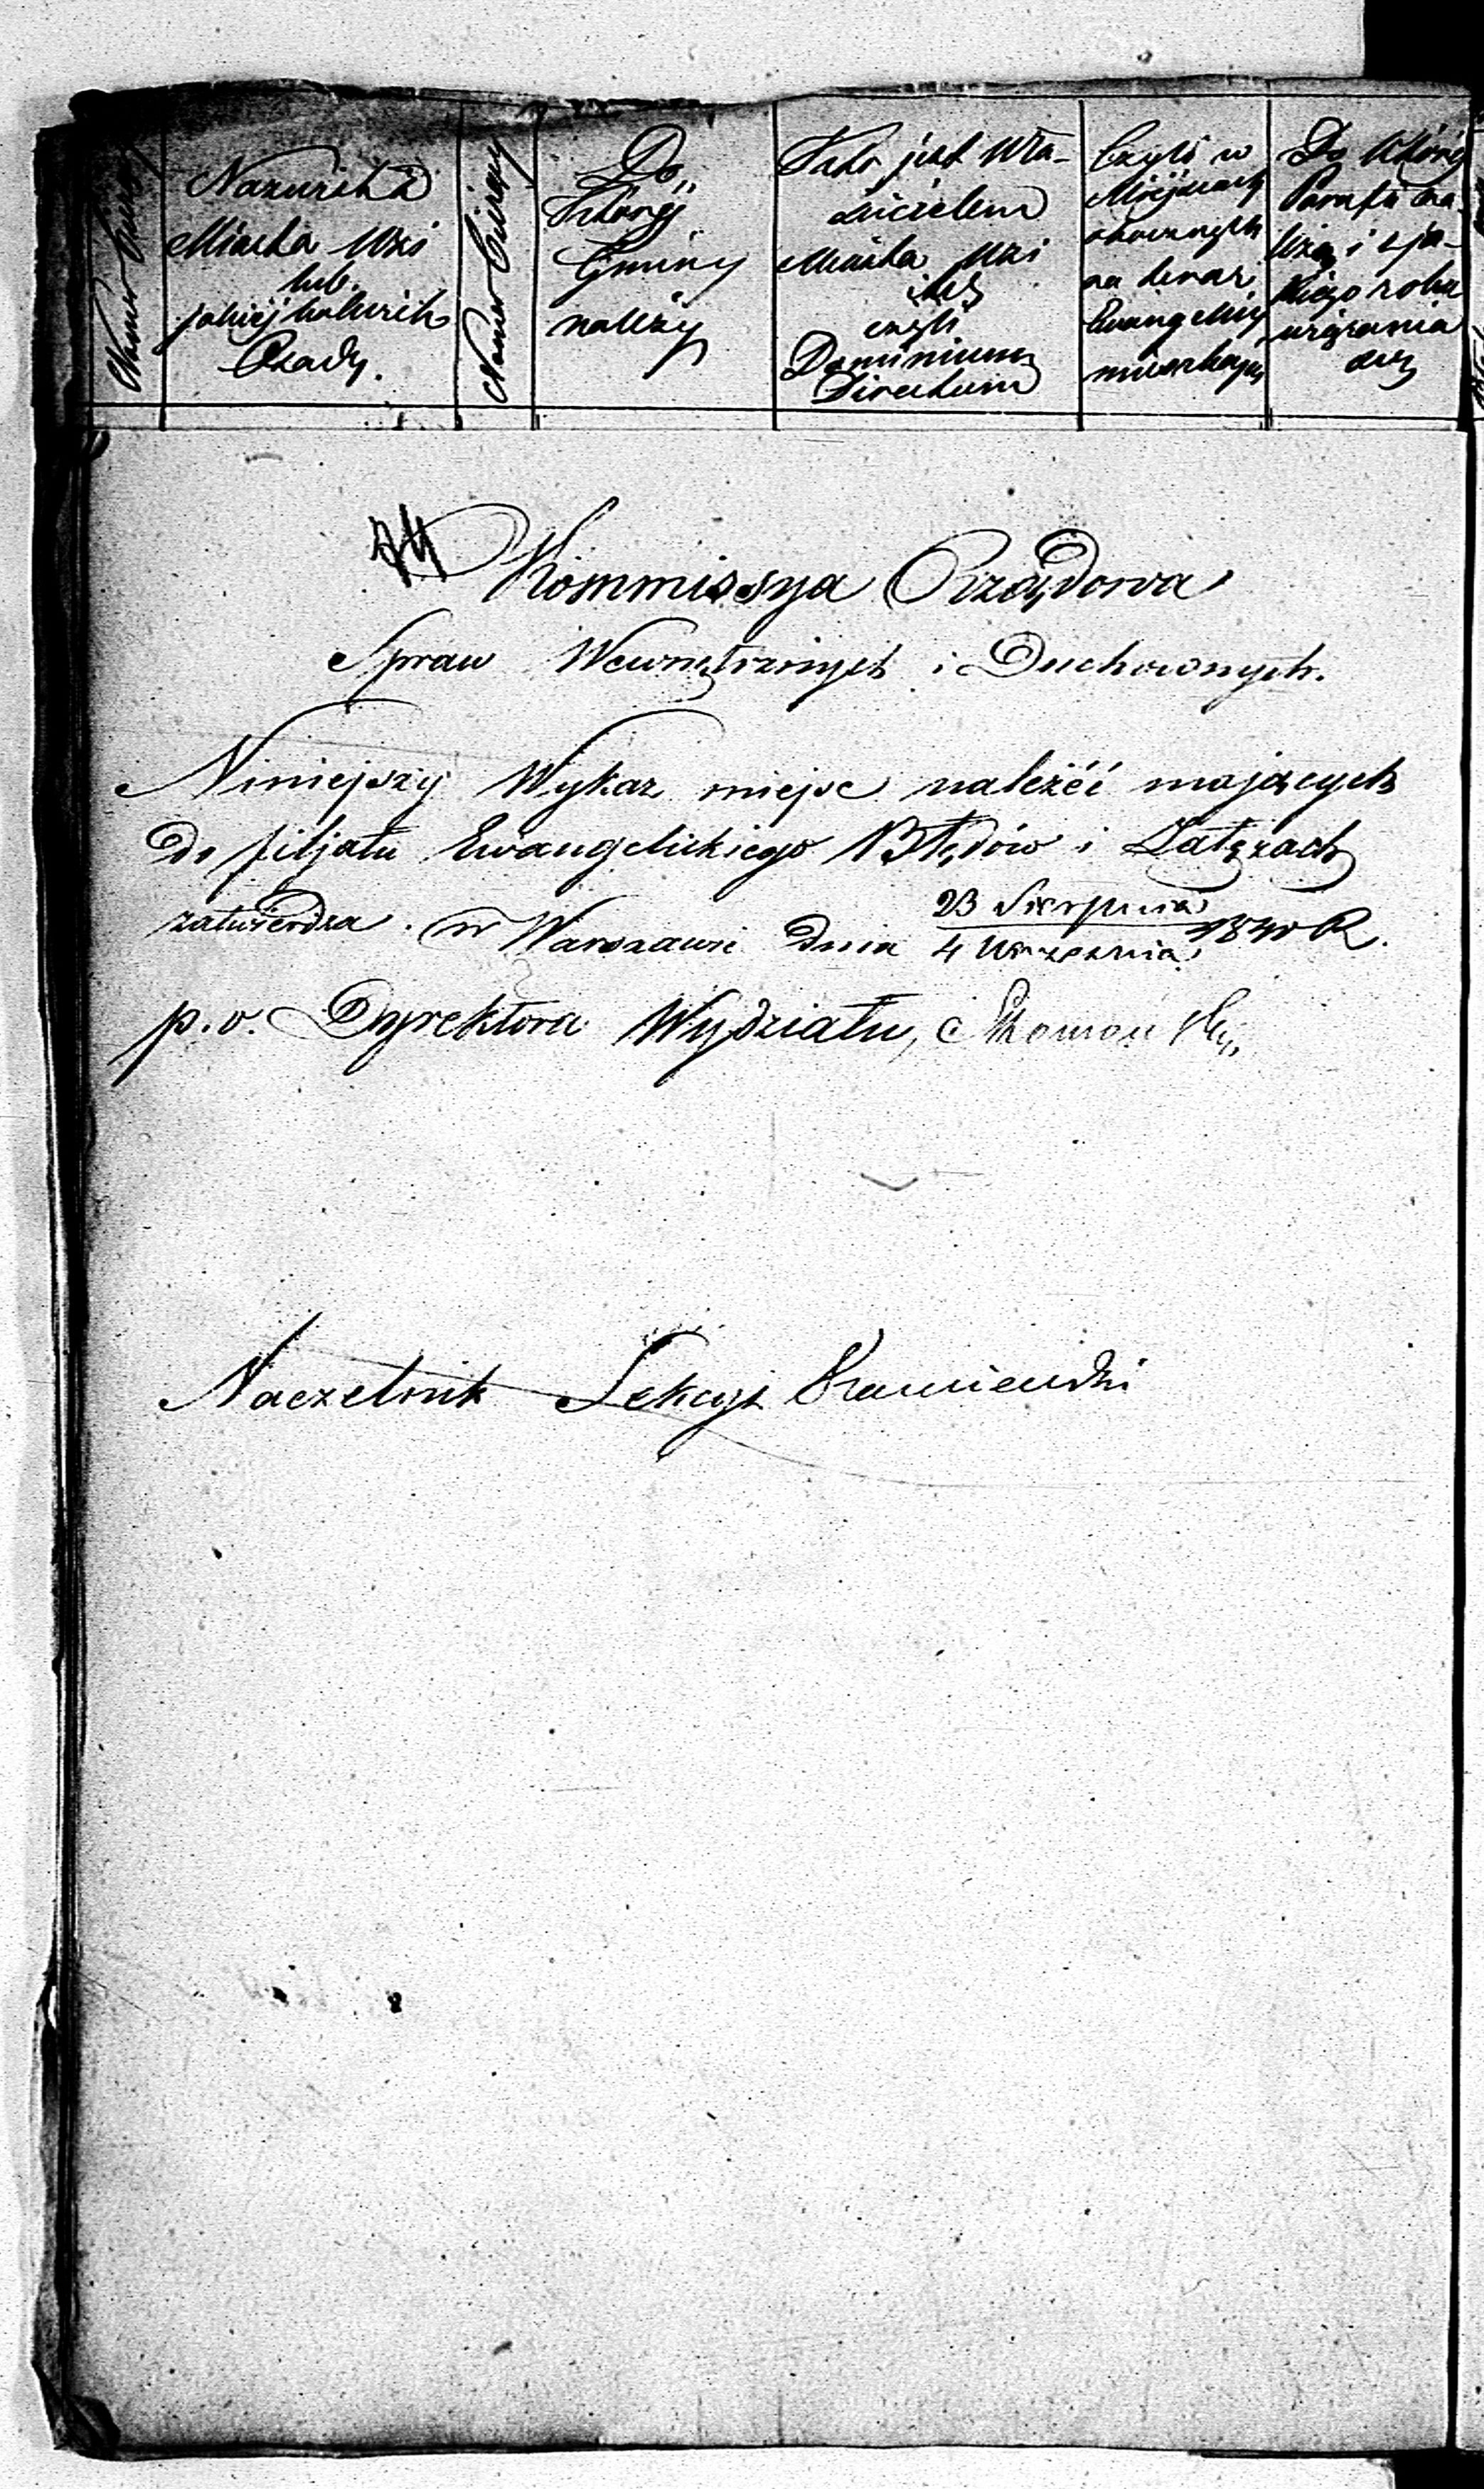 Numer
Nazwisko
Miasta Wsi
lub
jakiéj kolwiek
Osady.
Numer
Do
któréj
Gminy
należy
Kto jest Wła-
ścicielem
Miasta Wsi
czyli
Dominium
Directum
Czyli w
Miejscach
na teraz
Ewangelicy
mieszkają
Do któréj
Parafii na-
leżą i z ja-
kiego roku
Kommissya Rządowa
Spraw Wewnętrznych i Duchownych.
Niniejszy Wykaz miejsc należéć mających
do filjału Ewangelickiego Błędów i Załęzach
zatwierdza. w Warszawie dnia 23 Sierpnia / 4 Września 1840 R.
p.o. Dyrektora Wydziału,
Naczelnik Sekcyi Kamieński